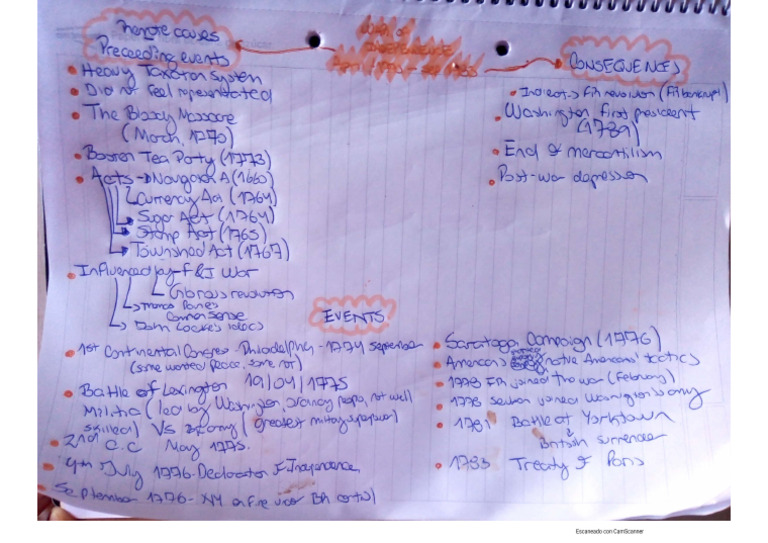 Remote causes
Preceeding events
Heavy Taxation System
Did not Feel represented
The Bloody Massacre
(March, 1770)
Boston Tea Party (1773)
Acts → Navigation A (1660)
Currency Act (1764)
Sugar Act (1764)
Stamp Act (1765)
Townshed Act (1767)
Influenced by - F & I War
Glorious revolution
Thomas Paine's
Common Sense
John Locke's ideas
War of
Independence
April 1775 - Sep 1783
CONSEQUENCES
Indirect → Fr revolution (Fr bankrupt)
Washington first president
(1789)
End of mercantilism
Post-war depression
EVENTS
1st Continental Congress Philadelphia - 1774 September
(some wanted Peace, some not)
Battle of Lexington 19/04/1775
Militia (led by Washington, ordinary people, not well
skilled) Vs Br army (greatest military power)
2nd C.C May 1775.
4th of July 1776 - Declaration of Independence
September 1776 - NY on fire under Br control
Saratoga Campaign (1776)
Americans native Americans' tactics
1778 Fr joined the war (February)
1778 joined Washington's army
1781 Battle at Yorktown
British surrender
1783 Treaty of Paris
Escaneado con CamScanner